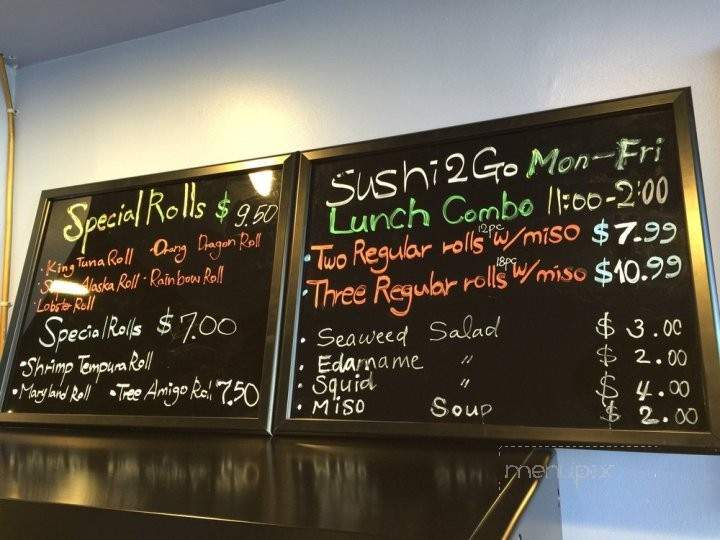 Special Rolls $ 9.50
• King Tuna Roll • Orang Dragon Roll
• Alaska Roll • Rainbow Roll
• Lobster Roll
Special Rolls $ 7.00
• Shrimp Tempura Roll
• Maryland Roll • Tree Amigo Roll 7.50
Sushi 2 Go Mon-Fri
Lunch Combo 11:00-2:00
• Two Regular rolls 12pc w/miso $ 7.99
• Three Regular rolls 18pc w/miso $10.99
• Seaweed Salad $ 3.00
• Edamame " $ 2.00
• Squid " $ 4.00
• Miso Soup $ 2.00
menupix